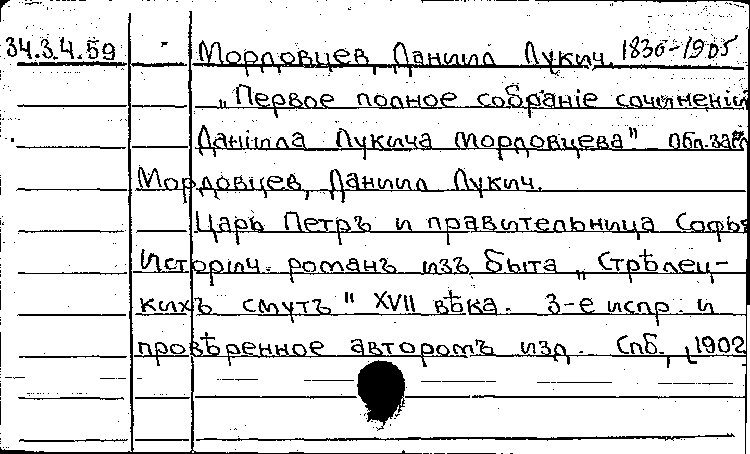 34.3.4.59 Мордовцев, Даниил Лукич. 1830-1905
„Первое полное собранiе сочиненiй
Данiила Лукича Мордовцева" Обл. загл
Мордовцев, Даниил Лукич.
Царь Петръ и правительница Софья
Историч. романъ изъ быта „Стрѣлец-
кихъ смутъ" XVII вѣка. 3-е испр. и
провѣренное авторомъ изд. Спб., [1902